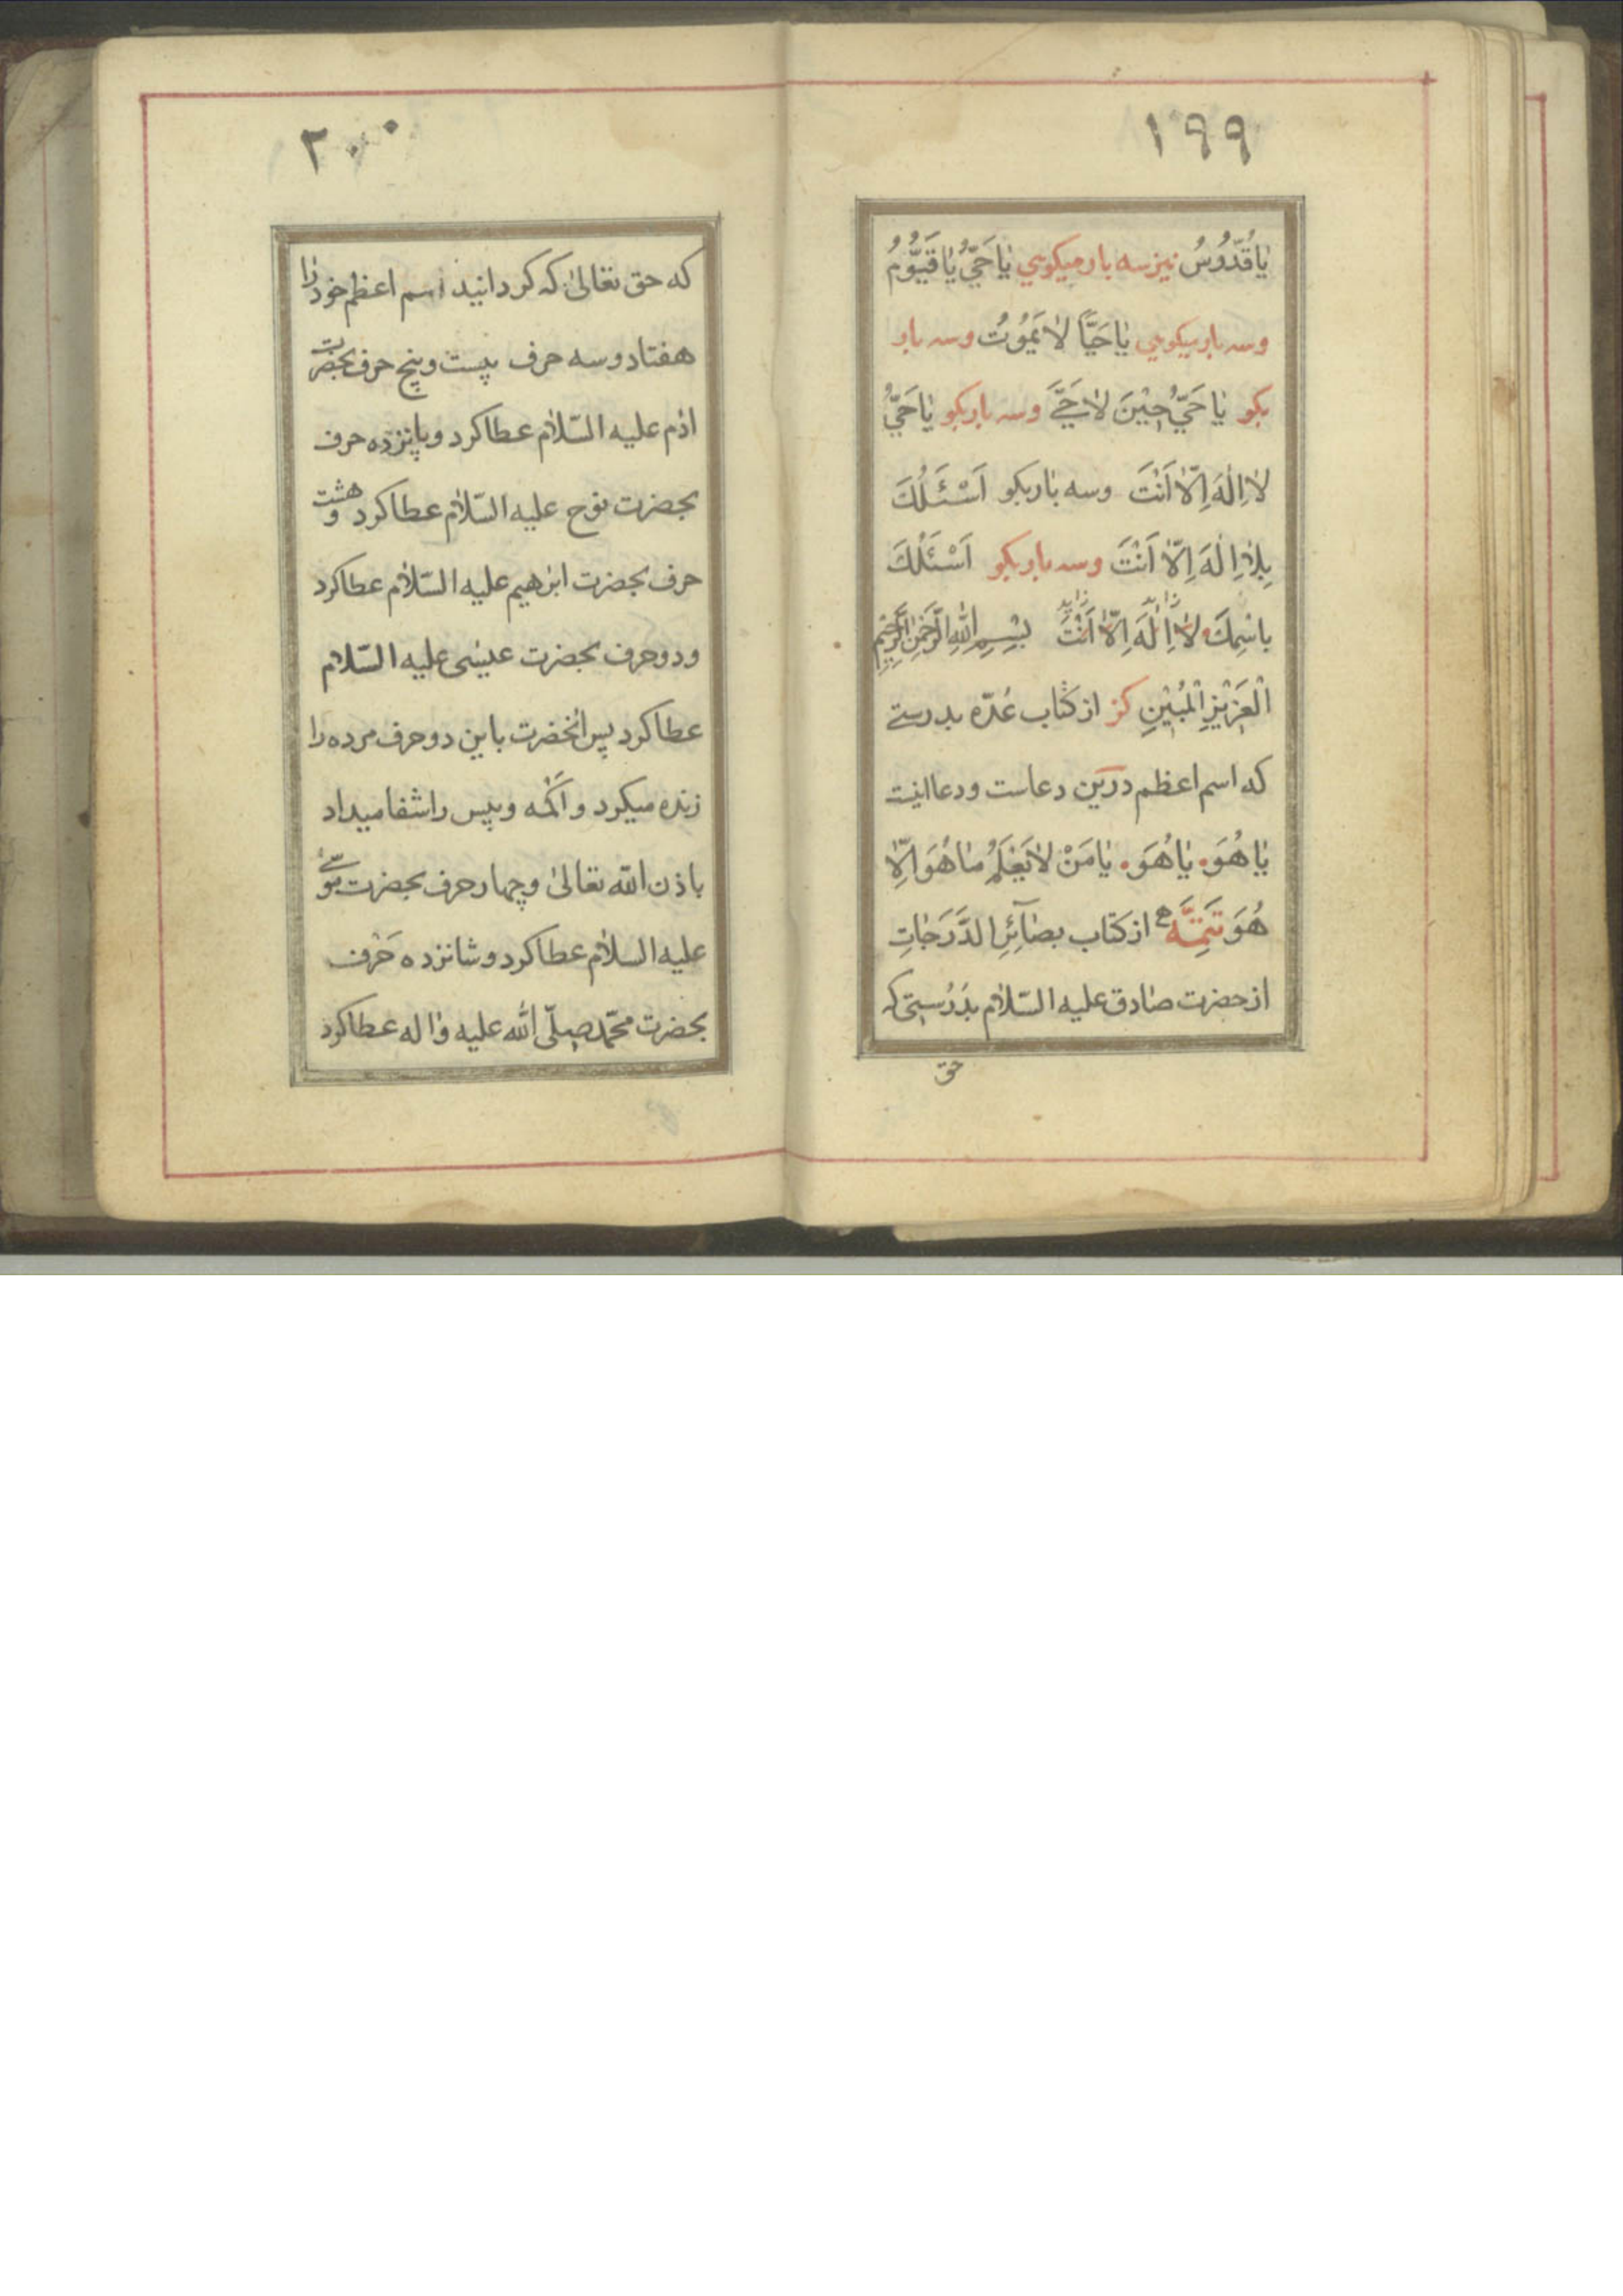 ١٩٩
يٰا قُدُّوُسُ نیز سه بار میکویی يٰا حَيُّ يٰا قَيُّوُمُ
وسه بار میکویی يٰا حَيًّا لاٰ يَمُوُتُ وسه بار
بکو يٰا حَيُّ حِيْنَ لاٰ حَيَّ وسه بار بکو يٰا حَيُّ
لاٰ اِلٰهَ اِلّاٰ اَنْتَ وسه بٰار بکو اَسْئَلُكَ
بِلاٰ اِلٰهَ اِلّاٰ اَنْتَ وسه بار بکو اَسْئَلُكَ
بِاسْمِكَ لاٰ اِلٰهَ اِلّاٰ اَنْتَ بِسْمِ اللّٰهِ الرَّحْمٰنِ الرَّحِيْمِ
الْعَزِيْزِ الْمُبِيْنِ کز از کتاب عُدّه بدرستے
که اسم اعظم درین دعاست ودعا اینست
يٰا هُوَ يٰا هُوَ يٰا مَنْ لاٰ يَعْلَمُ مٰا هُوَ اِلّاٰ
هُوَ تَتِمَّه از کتاب بصٰآئِر الدَّرَجٰاتِ
از حضرت صٰادق علیه السّلاٰم بدُرُستی که
حق
٢٠٠
که حق تعٰالیٰ که کردانید اسم اعظم خود رٰا
هفتاد وسه حرف بیست وپنج حرف بحضرت
ادٰم علیه السّلاٰم عطا کرد وپانزده حرف
بحضرت نوح علیه السّلاٰم عطا کرد وهشت
حرف بحضرت ابرٰهیم علیه السّلاٰم عطا کرد
ودو حرف بحضرت عیسٰی علیه السّلاٰم
عطا کرد پس انٰحضرت باین دو حرف مرده رٰا
زنده میکرد واَکْمَه وپیس را شفا میداد
باذن اللّٰه تعٰالیٰ وچهار حرف بحضرت موسٰے
علیه السلاٰم عطا کرد وشانزده حَرْف
بحضرت محمّد صلّی اللّٰه علیه وٰاله عطا کرد